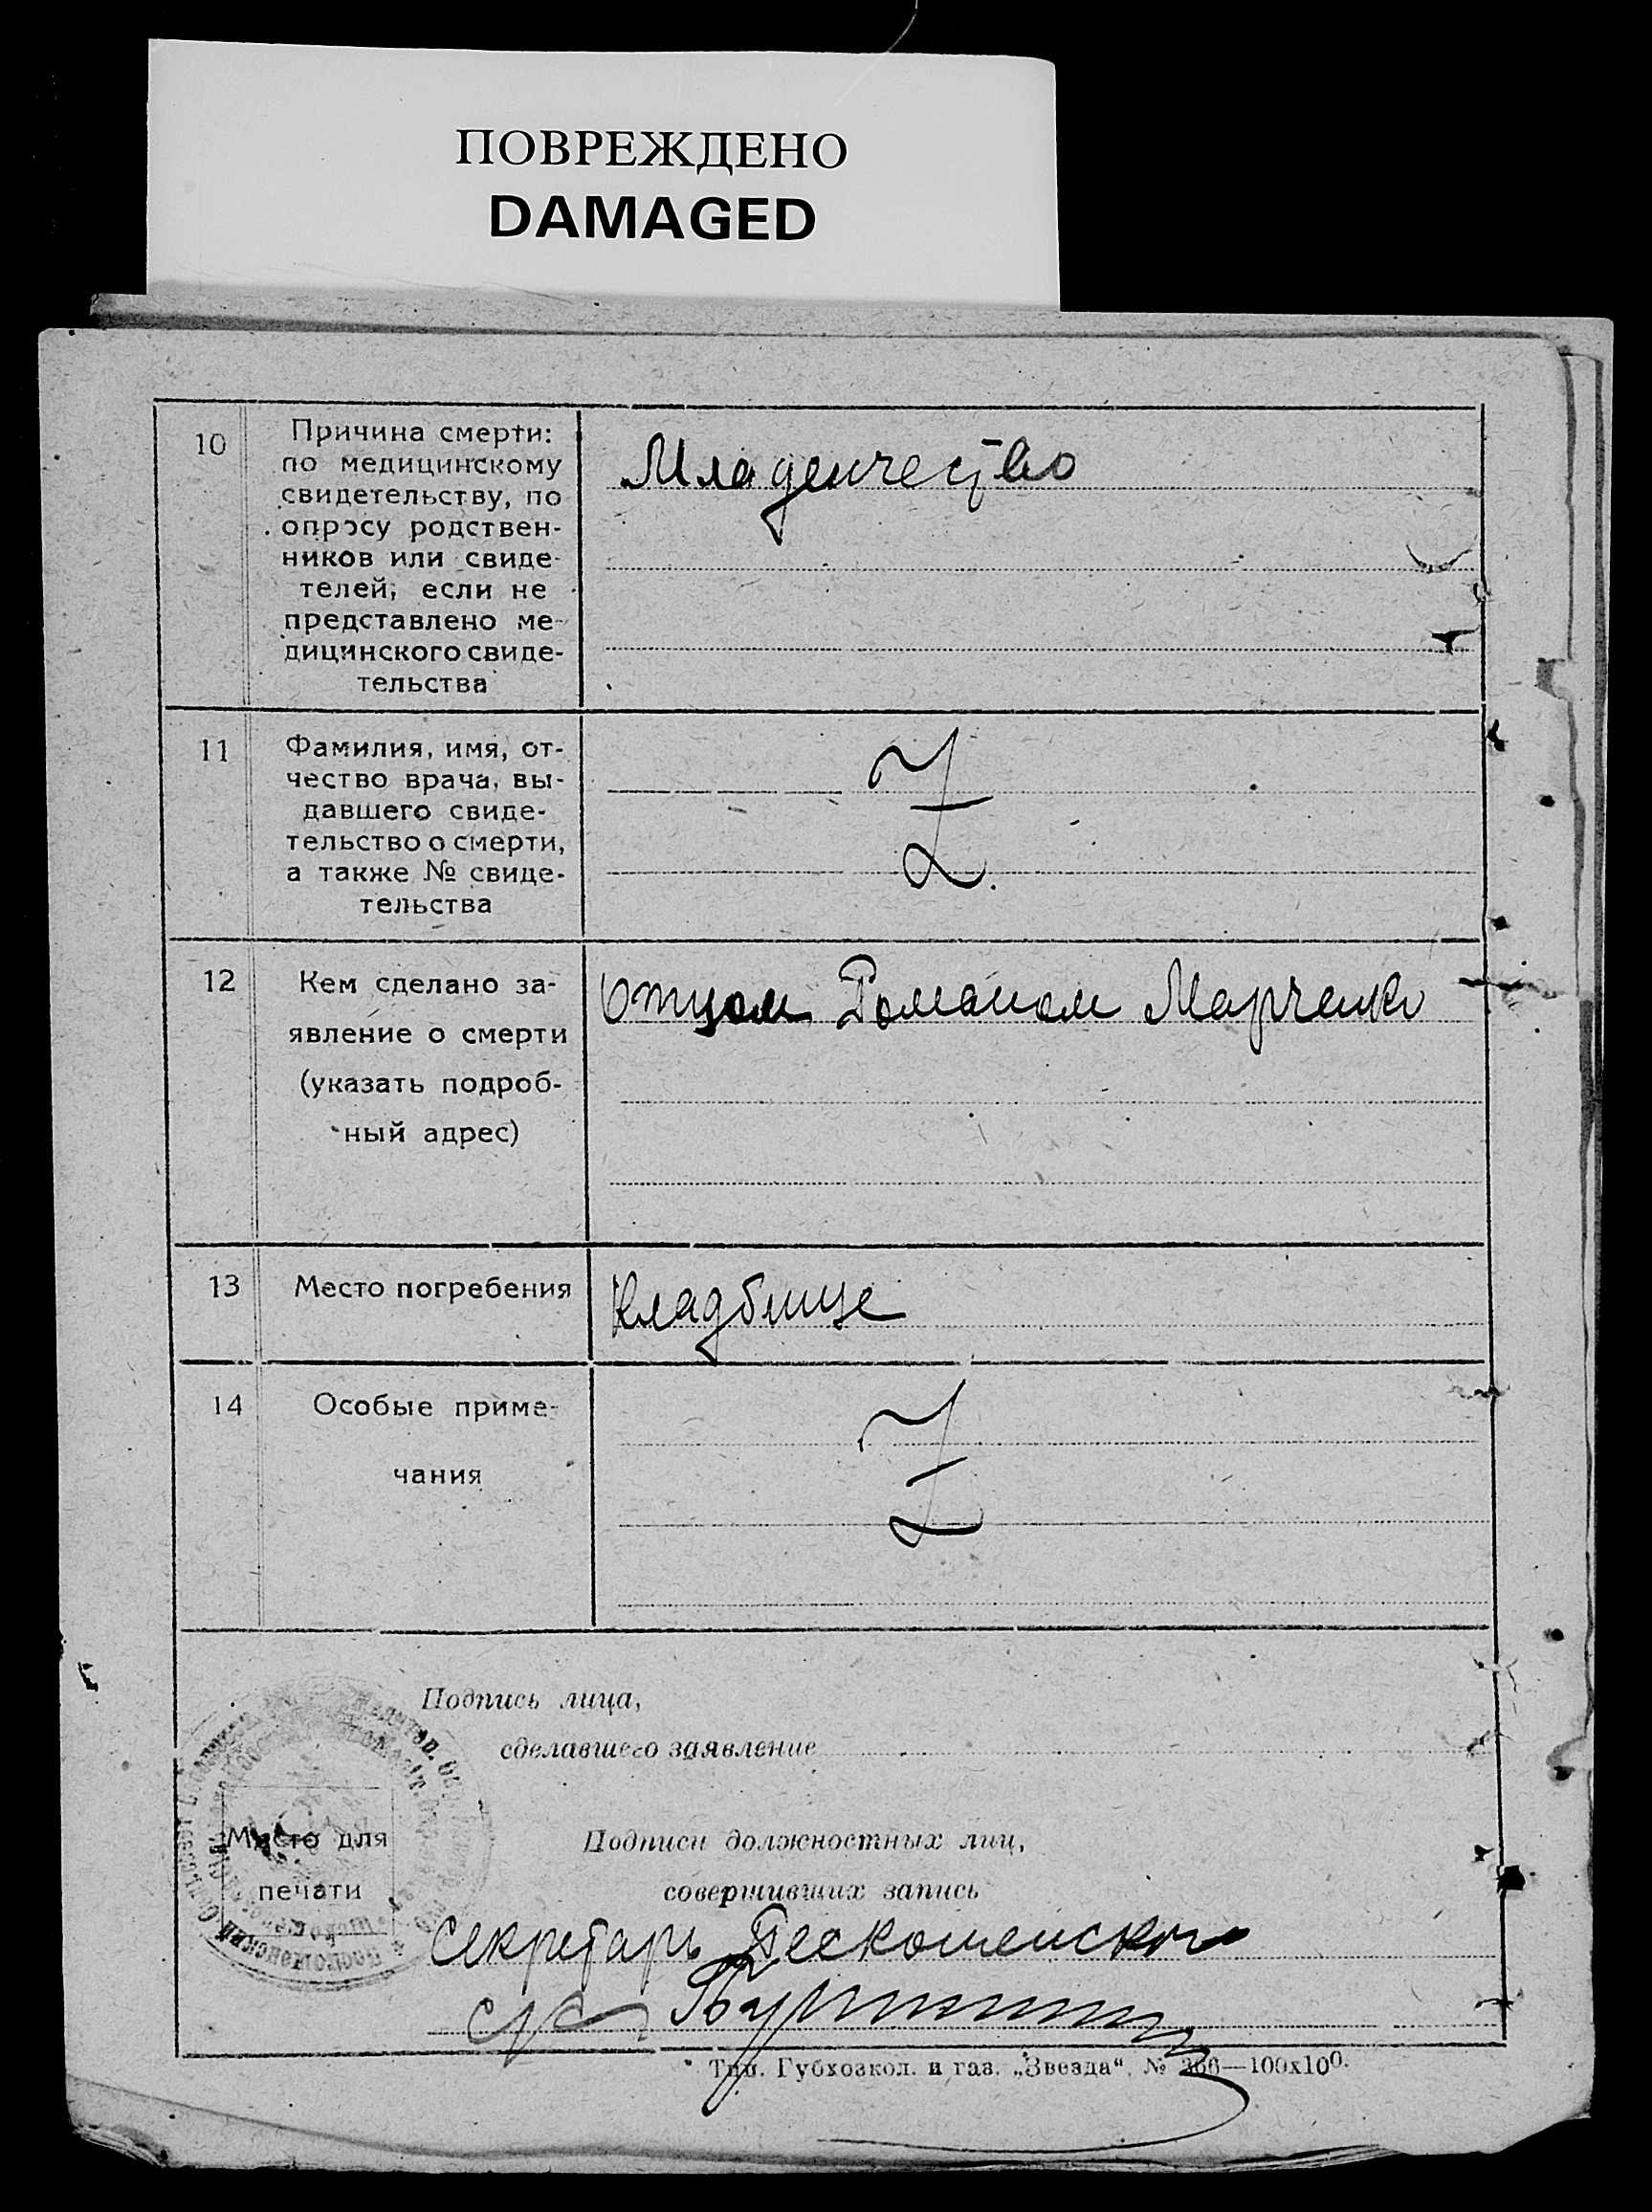 ПОВРЕЖДЕНО
DAMAGED
10
Причина смерти:
по медицинскому
свидетельству, по
опросу родствен-
ников или свиде-
телей, если не
представлено ме-
дицинского свиде-
тельства
Младенчество
11
Фамилия, имя, от-
чество врача, вы-
давшего свиде-
тельство о смерти,
а также № свиде-
тельства
Z
12
Кем сделано за-
явление о смерти
(указать подроб-
ный адрес)
Отцом Романом Марченко
13
Место погребения
Кладбище
14
Особые приме-
чания
Z
Подпись лица,
сделавшего заявление
Место для
печати
Подписи должностных лиц,
совершивших запись
Секретарь
Тип. Губхозкол. и газ. „Звезда“. № 366—100х100.